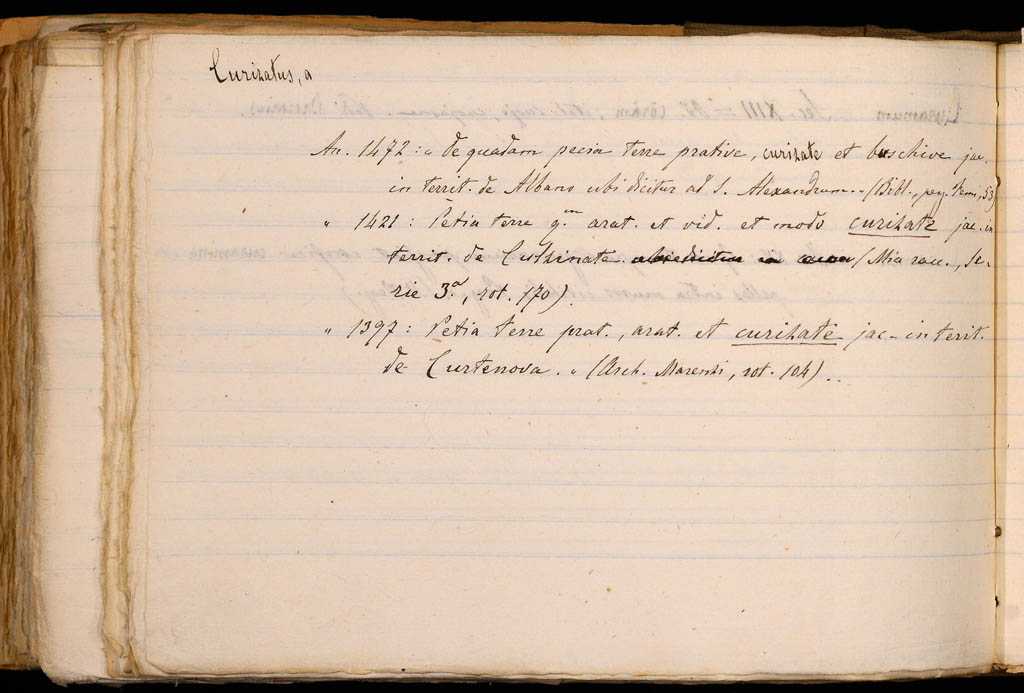 Curihatus, a
An. 1472: " de quadam pecia terre prative, curihate et buschive jac.
in territ. de Albano ubi dicitur ad S. Alexandrum. " (Bibl., perg. Items, 53)
" 1421: Petia terre qm arat. et vid. et modo curihate jac. in
territ. de Cultinate (Mia racc., Se-
rie 3.a, rot. 170).
" 1397: Petia terre prat., arat. et curihate jac. in terit.
de Curtenova. " (Arch. Morenti, rot. 104)..